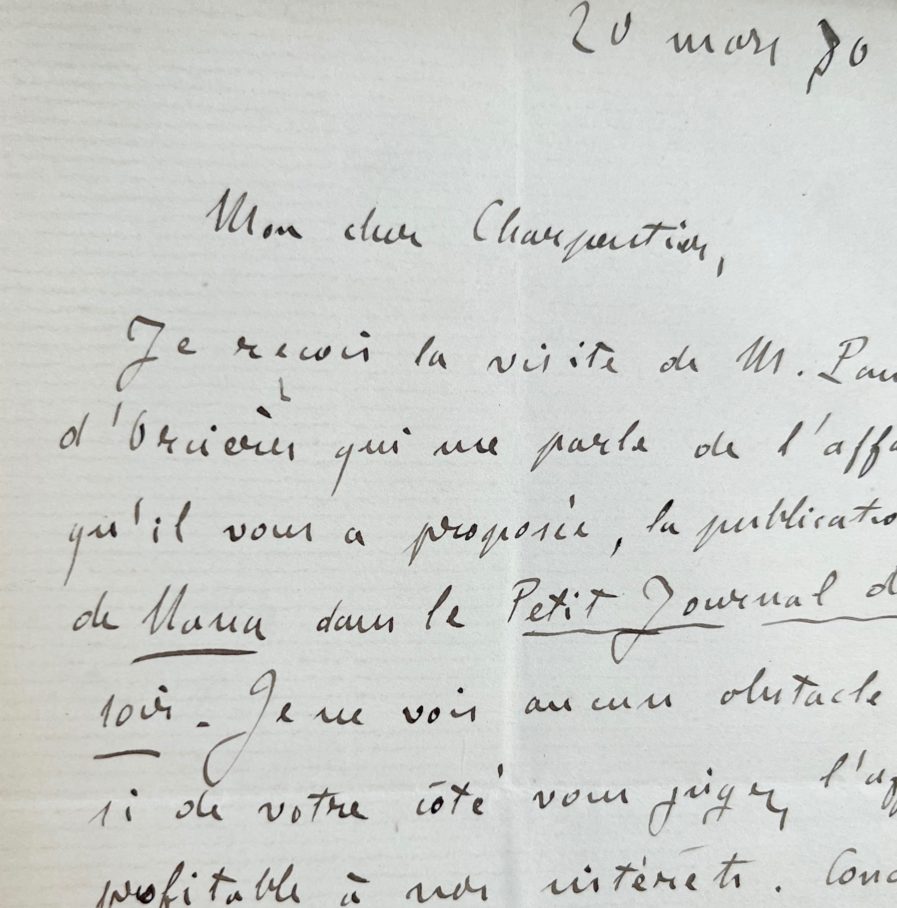 20 mars 80
Mon cher Charpentier,
Je reçois la visite de M. Pau
d'Orcières qui me parle de l'affa
qu'il vous a proposée, la publicatio
de Nana dans le Petit Journal d
soir. Je ne vois aucun obstacle
si de votre côté vous jugez l'af
profitable à nos intérêts. Conc